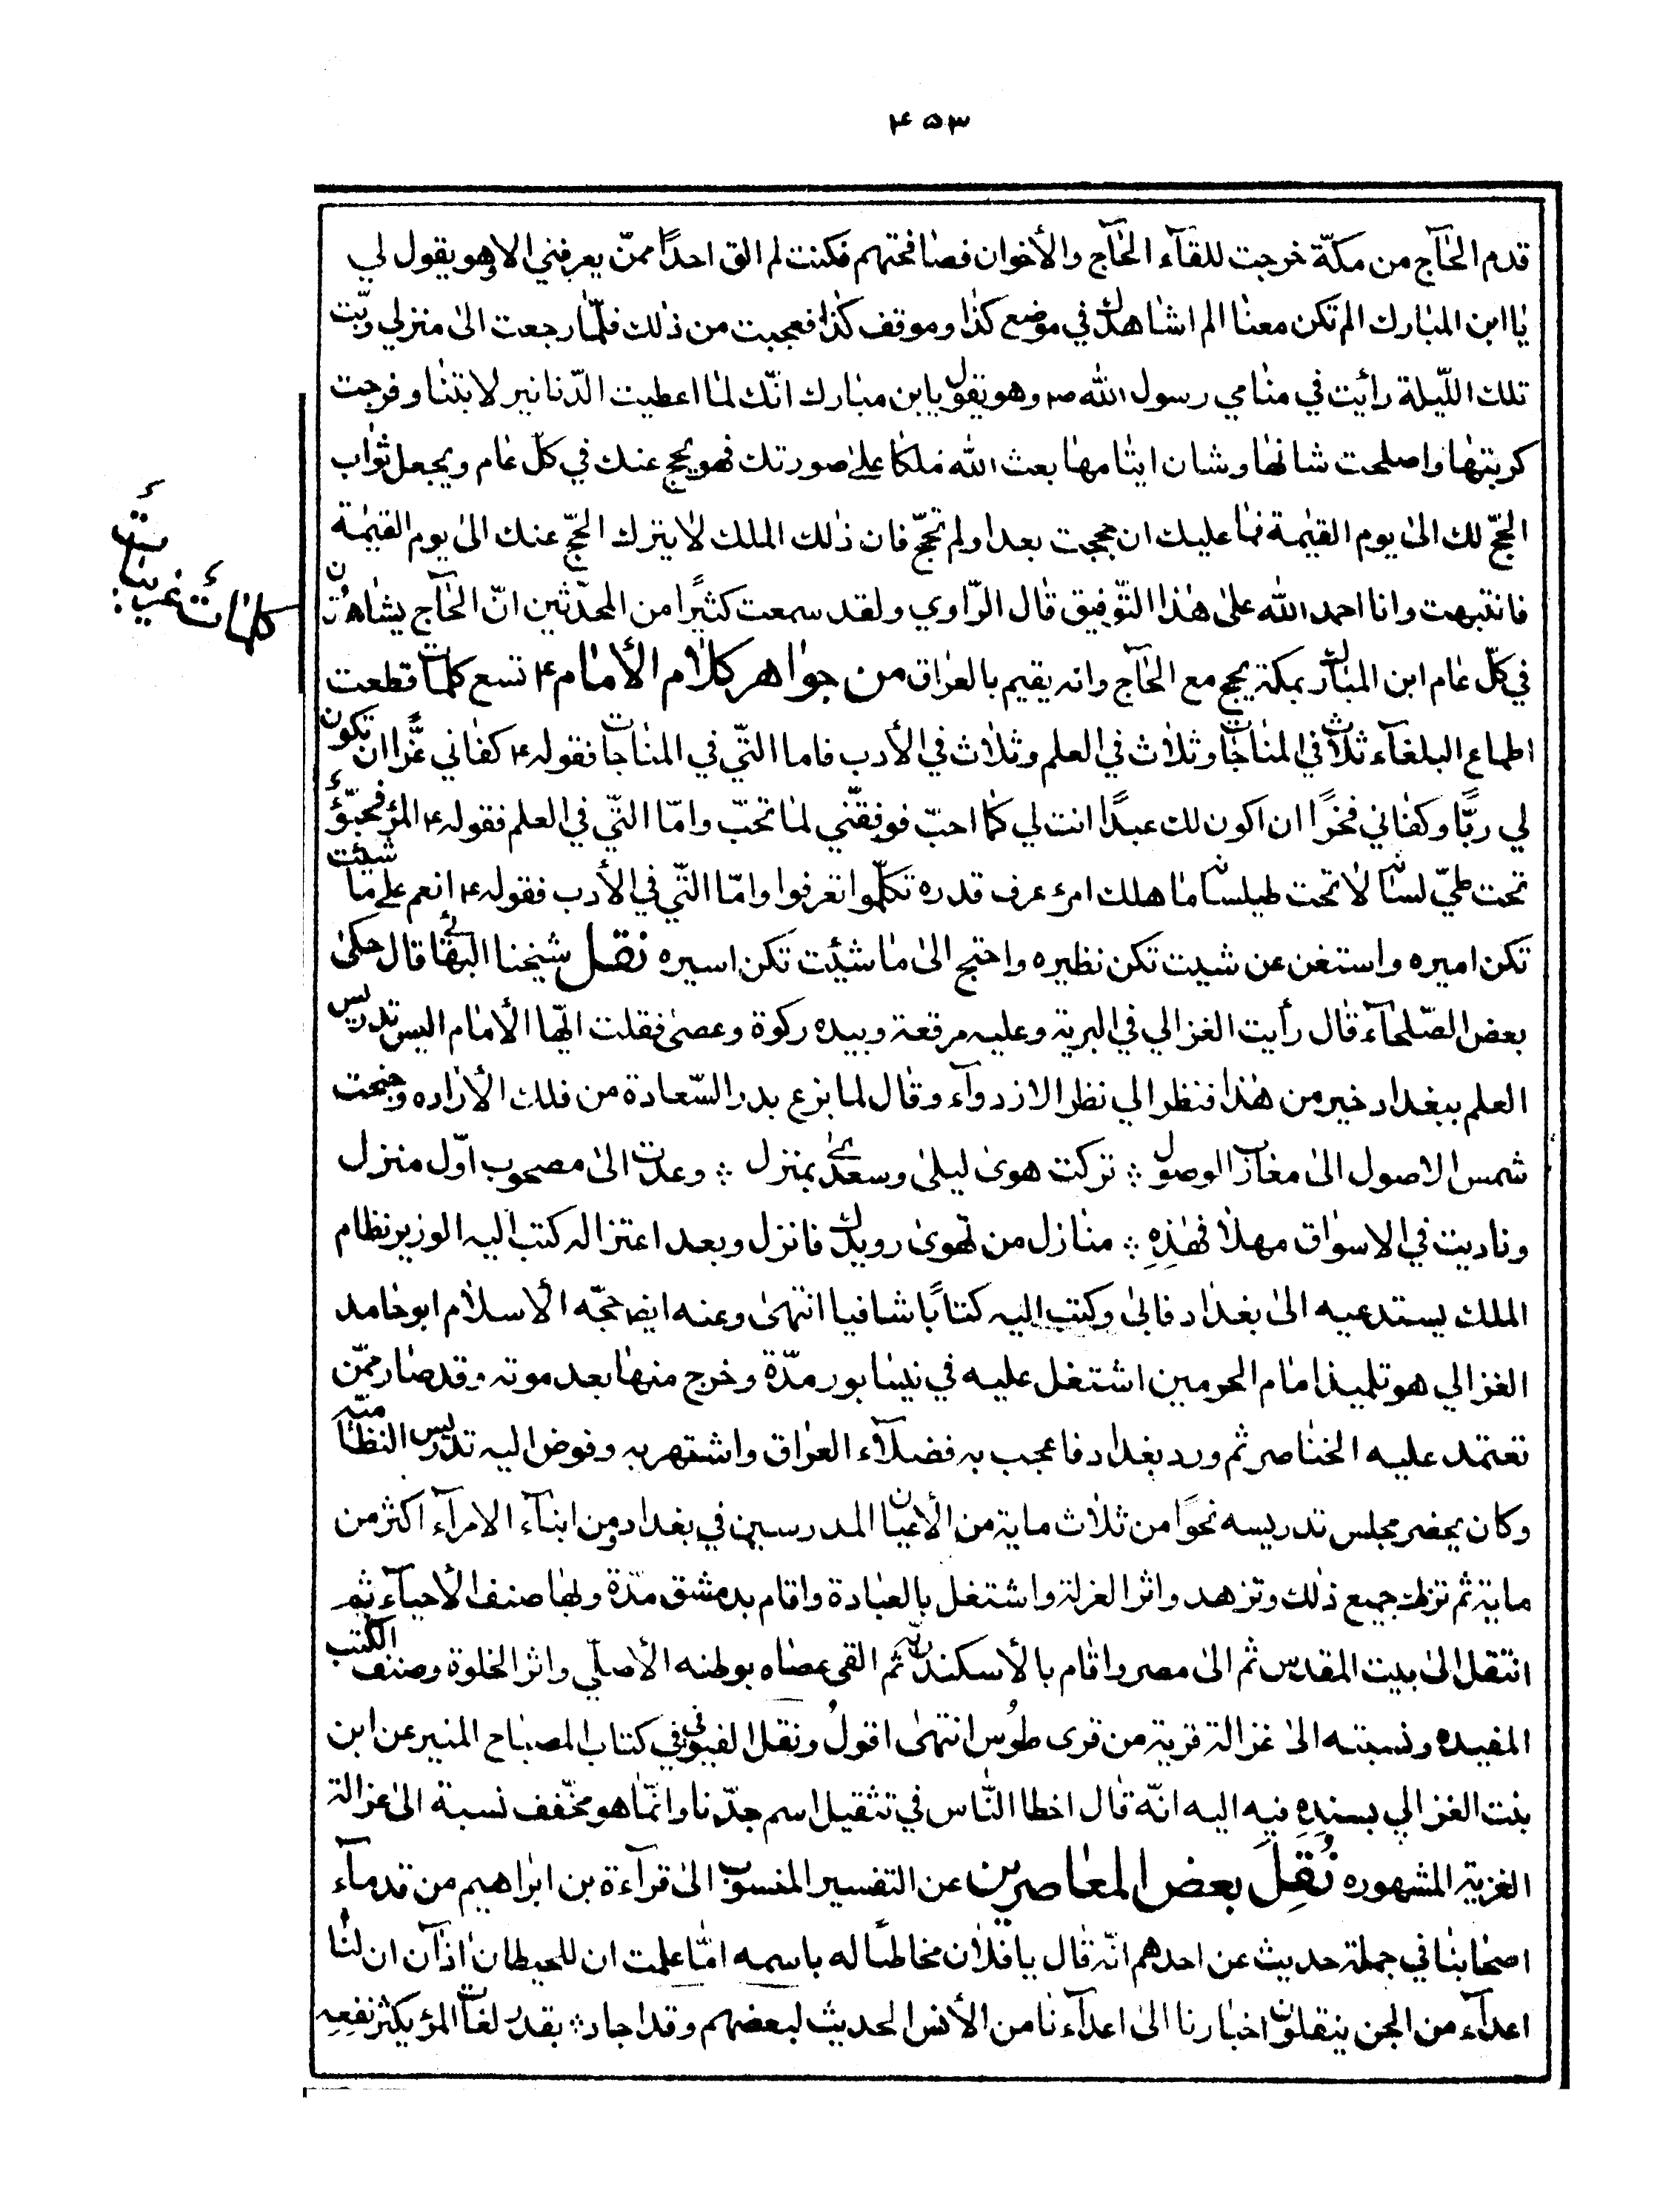 ٤٥٣
قدم الحٰآج من مكّة خرجت للقآء الحٰآج والأخوان فصٰافحتهم فكنت لم الق احدًا ممّن يعرفني الا وهو يقول لي
يٰا ابن المبٰارك الم تكن معنٰا الم اشٰاهدك في موضع كذٰا وموقف كذٰا فعجبت من ذٰلك فلمّٰا رجعت الىٰ منزلي وبّت
تلك اللّيلة رأيت في منٰامي رسول الله ص وهو يقول يا بن مبٰارك انّك لمٰا اعطيت الدّنانير لابتنٰا وفرجت
كربتهٰا واصلحت شانهٰا وشان ايتٰامهٰا بعث الله ملكٰا علىٰ صورتك فهو يحج عنك في كلّ عٰام ويجعل ثوٰاب
الحجّ لك الىٰ يوم القيٰمة فمٰا عليك ان حججت بعد او لم تحجّ فان ذٰلك الملك لا يترك الحجّ عنك الىٰ يوم القيٰمة
فانتبهت وانا احمد الله علىٰ هٰذا التّوفيق قٰال الرّاوي ولقد سمعت كثيرًا من المحدّثين انّ الحٰآج يشٰاهدون
في كلّ عٰام ابن المبٰارك بمكة يحج مع الحٰآج وانه يقيم بالعرٰاق من جوٰاهر كلاٰم الأمٰام ع تسع كلمٰات قطعت
اطمٰاع البلغآء ثلاٰث في المنٰاجٰات وثلاٰث في العلم وثلاٰث في الأدب فاما التّي في المنٰاجات فقوله ع كفٰاني عزًّا ان تكون
لي ربًّا وكفٰاني فخرًا ان اكون لك عبدًا انت لي كمٰا احبّ فوفقّني لمٰا تحبّ وامّا التّي في العلم فقوله ع المرؤ مخبّؤ
تحت طيّ لسانه لاٰ تحت طيلسانه مٰا هلك امرؤ عرف قدره تكلّموا تعرفوا وامّا التّي في الأدب فقوله ع انعم علىٰ مٰا شئت
تكن اميره واستغن عن شيت تكن نظيره واحتج الىٰ مٰا شئت تكن اسيره نقل شيخنا البهٰائي قال حكىٰ
بعض الصّلحآء قٰال رأيت الغزالي في البرية وعليه مرقعة وبيده ركوة وعصىٰ فقلت ايّها الأمٰام اليس تدريس
العلم ببغداد خير من هٰذا فنظر الي نظر الازدوآء وقٰال لما بزغ بدر السّعادة من فلك الأرٰاده وجنحت
شمس الاصول الىٰ مغٰارب الوصول ؞ تركت هوىٰ ليلىٰ وسعدىٰ بمنزل ؞ وعدت الىٰ مصحوب اوّل منزل
وناديت في الاسوٰاق مهلاٰ فهٰذِهِ ؞ منٰازل من تهوىٰ رويدك فانزل وبعد اعتزاله كتب اليه الوزير نظام
الملك يستدعيه الىٰ بغدٰاد فابىٰ وكتب اليه كتابًا شافيا انتهىٰ وعنه ايضا حجّه الأسلاٰم ابو حٰامد
الغزالي هو تلميذ امٰام الحرمين اشتغل عليه في نيشٰابور مدّة وخرج منهٰا بعد موته وقد صٰار ممّن
تعتمد عليه الخنٰاصر ثم ورد بغدٰاد فاعجب به فضلآء العرٰاق واشتهر به وفوض اليه تدريس النظٰاميّه
وكان يحضر مجلس تدريسه نحوًا من ثلاٰث ماية من الأعيٰان المدرسين في بغدٰاد ومن ابنٰآء الامرآء اكثر من
ماية ثم ترك جميع ذٰلك وتزهد واثر العزلة واشتغل بالعبٰادة واقام بدمشق مدّة وبهٰا صنف الأحيآء ثم
انتقل الىٰ بيت المقدس ثم الىٰ مصر واقٰام بالأسكندريّه ثم القى عصٰاه بوطنه الأصلّي واثر الخلوة وصنف الكتب
المفيده ونسبته الىٰ غزالة قرية من قرى طُوس انتهىٰ اقولُ ونقل الفيّومي في كتاب المصبٰاح المنير عن ابن
بنت الغزالي بسندِهِ فيه اليه انّه قٰال اخطا النّٰاس في تثقيل اسم جدّنا وانّمٰا هو مخفّف نسبة الىٰ غزالة
القرية المشهوره نُقِلَ بعض المعٰاصرين عن التفسير المنسوب الىٰ قرآءة بن ابرٰاهيم من قدمآء
اصحٰابنٰا في جملة حديث عن احدهم انّه قٰال يا فلاٰن مخاطبًا له باسمه امّا علمت ان للحيطٰان اذٰان ان لنٰا
اعدآء من الجن ينقلون اخبٰارنا الىٰ اعدآءنٰا من الأنس الحديث لبعضهم وقد اجاد ؞ بقدر لغات المرؤ يكثر نفعِهِ
كلمٰات غريبٰة